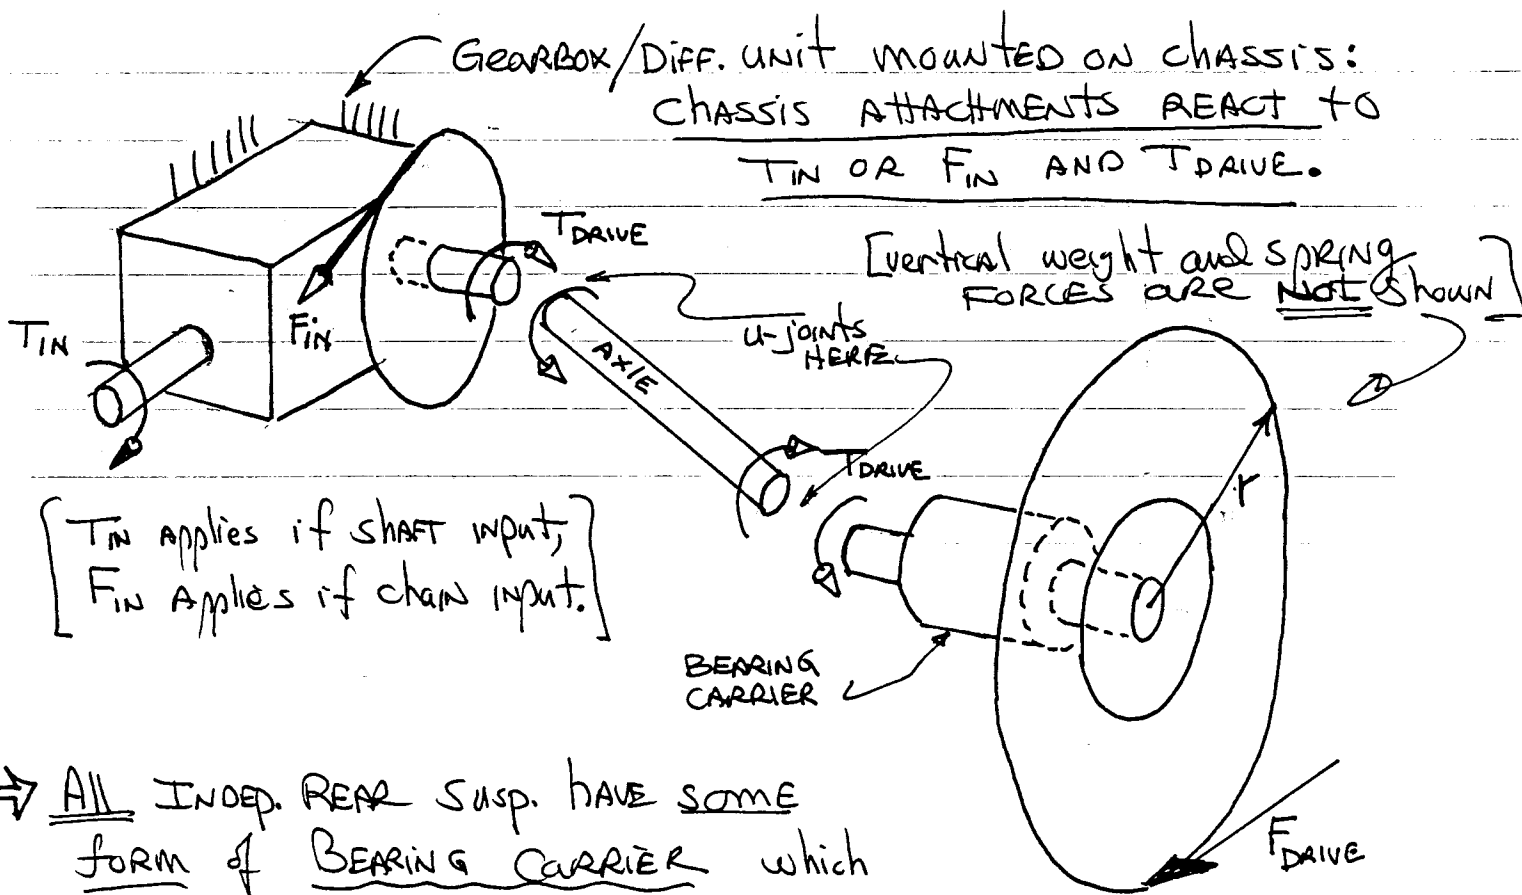 GEARBOX/DIFF. UNIT MOUNTED ON CHASSIS:
CHASSIS ATTACHMENTS REACT TO
TIN OR FIN AND TDRIVE.
TDRIVE
[vertical weight and SPRING
FORCES are NOT shown]
TIN
FIN
U-joints
HERE
AXIE
TDRIVE
r
[TIN Applies if SHAFT INPUT;
FIN Applies if chain INPUT.]
BEARING
CARRIER
⇒ All INDEP. REAR SUSP. HAVE SOME
FORM of BEARING CARRIER which
FDRIVE